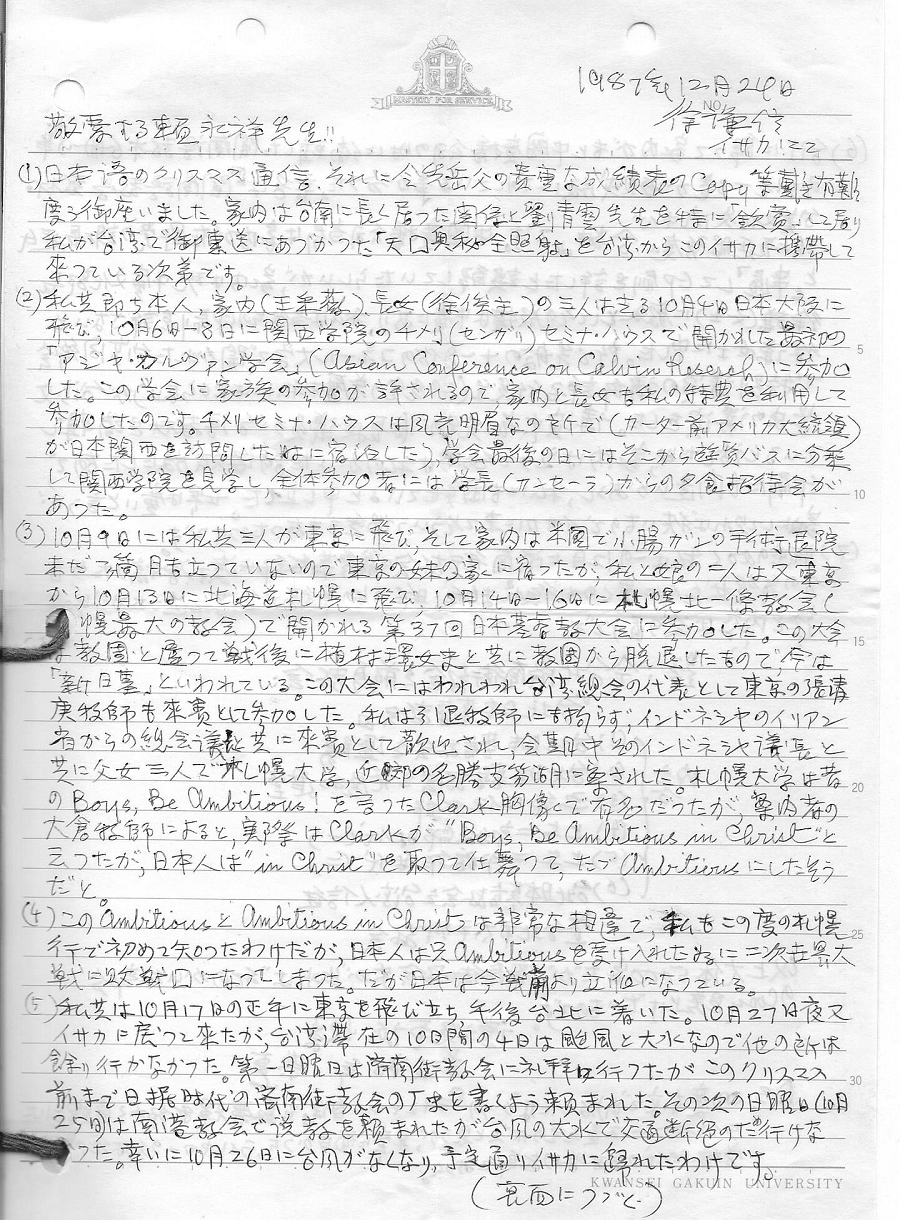 MASTERY FOR SERVICE
1987年12月24日
徐謙信
NO
イサカにて
敬愛する賴永祥先生!!
(1)日本語のクリスマス通信、それに令先岳父の貴重な成績表のCopy等戴き有難
度う御座いました。家内は台南に長く居った関係上劉青雲先生を特に「欽賞」して居り
私が台湾で御恵送にあづかった「天口奥秘全照射」を台湾からこのイサカに携帯して
来っている次第です。
(2)私共即ち本人、家内(王翠薇)、長女(徐俟主)の三人は去る10月4日日本大阪に
飛び、10月6日-8日に関西学院のチメリ(センガリ)セミナ・ハウスで開かれた最初の
「アジヤ・カルヴァン学会」(Asian Conference on Calvin Reserch)に参加
した。この学会に家族の参加が許されるので、家内と長女も私の特費を利用して
参加したのです。チメリセミナ・ハウスは風光明眉なの所で(カーター前アメリカ大統領
が日本関西を訪問した時に宿泊した)、学会最後の日にはそこから遊覧バスに分乗
して関西学院を見学し全体参加者には学長(カンセーラ)からの夕食招待会が
あった。
(3)10月9日には私共三人が東京に飛び、そして家内は米国で小腸ガンの手術退院
未だ 箇月も立っていないので東京の妹の家に宿ったが、私と娘の二人は又東京
から10月13日に北海道札幌に飛び、10月14日-16日に札幌北一條教会(
幌最大の教会)で開かれる第37回日本基督教大会に参加した。この大会
は教團と違って戦後に植村環女史と共に教團から脱退したもので今は
「新日基」といわれている。この大会にはわれわれ台湾総会の代表として東京の張清
庚牧師も来賓として参加した。私は引退牧師にも拘らず、インドネシヤのイリアン
省からの総会議長と共に来賓として歓迎され、会期中そのインドネシヤ議長と
共に父女三人で札幌大学、近郷の名勝支笏湖に案された。札幌大学は昔
のBoys, Be Ambitious! を言ったClark胸像で有名だったが、案内者の
大倉牧師によると、実際はClarkが"Boys, Be Ambitious in Christ"と
云ったが、日本人は"in Christ"を取って仕舞って、たゞAmbitiousにしたそう
だと。
(4)このAmbitiousとAmbitious in Christは非常な相違で、私もこの度の札幌
行で初めて知ったわけだが、日本人は只Ambitiousを受け入れた為に二次世界大
戦に敗戦国になってしまった。だが日本は今戦前より立派になっている。
(5)私共は10月17日の正午に東京を飛び立ち、午後台北に着いた。10月27日夜又
イサカに戻って来たが、台湾滞在の10日間の4日は颱風と大水なので他の所は
餘り行かなかった。第一日曜日は済南街教会に礼拝に行ったがこのクリスマス
前まで日据時代の済南街教会の歴史を書くよう頼まれた。その次の日曜日(10月
25日)は南港教会で説教を頼まれたが台風の大水で交通断絶のため行けな
った。幸いに10月26日に台風がなくなり、予定通りイサカに歸れたわけです。
(裏面につづく)
5
10
15
20
25
30
KWANSEI GAKUIN UNIVERSITY